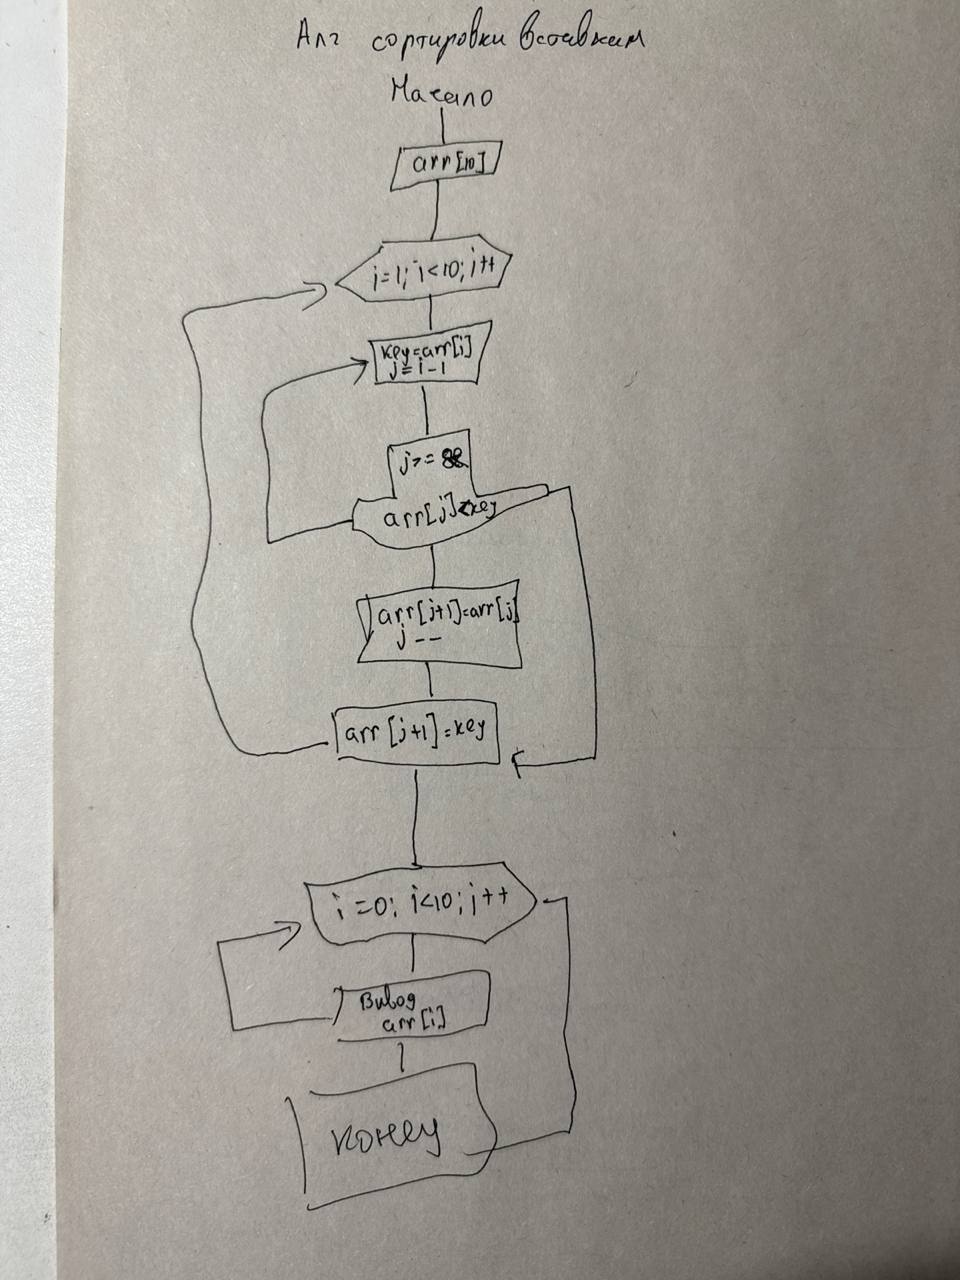 Алг сортировки вставкам
Начало
arr[10]
i=1; i<10; i++
key=arr[i]
j=i-1
j>= &&
arr[j]<key
arr[j+1]=arr[j]
j--
arr[j+1]=key
i=0; i<10; i++
Вывод
arr[i]
конец